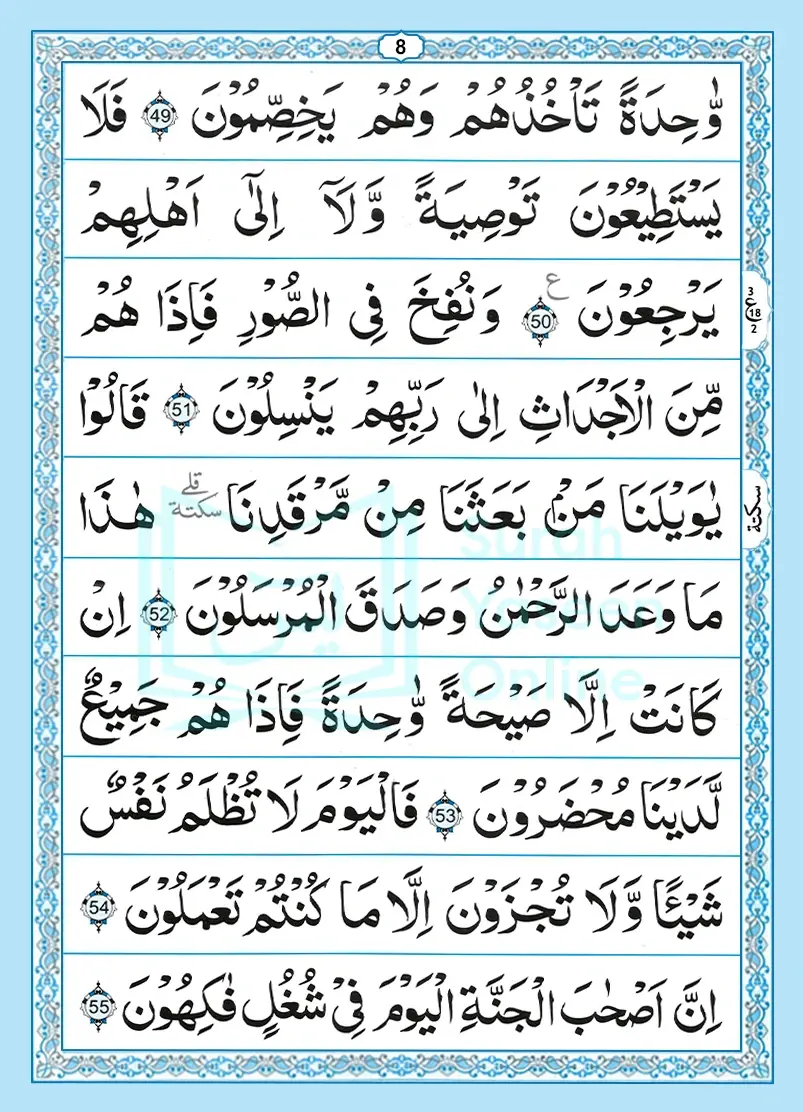 8
وّٰحِدَةً تَاْخُذُهُمْ وَهُمْ يَخِصِّمُوْنَ 49 فَلَا
يَسْتَطِيْعُوْنَ تَوْصِيَةً وَّلَاۤ اِلٰٓى اَهْلِهِمْ
يَرْجِعُوْنَ 50 ع وَنُفِخَ فِى الصُّوْرِ فَاِذَا هُمْ
3 ع 18 2
مِّنَ الْاَجْدَاثِ اِلٰى رَبِّهِمْ يَنْسِلُوْنَ 51 قَالُوْا
يٰوَيْلَنَا مَنْۢ بَعَثَنَا مِنْ مَّرْقَدِنَا قلے سكتة هٰذَا
سكتة
مَا وَعَدَ الرَّحْمٰنُ وَصَدَقَ الْمُرْسَلُوْنَ 52 اِنْ
كَانَتْ اِلَّا صَيْحَةً وّٰحِدَةً فَاِذَا هُمْ جَمِيْعٌ
لَّدَيْنَا مُحْضَرُوْنَ 53 فَالْيَوْمَ لَا تُظْلَمُ نَفْسٌ
شَيْـًٔا وَّلَا تُجْزَوْنَ اِلَّا مَا كُنْتُمْ تَعْمَلُوْنَ 54
اِنَّ اَصْحٰبَ الْجَنَّةِ الْيَوْمَ فِىْ شُغُلٍ فٰكِهُوْنَ 55
يس
Surah
Yaseen
Online